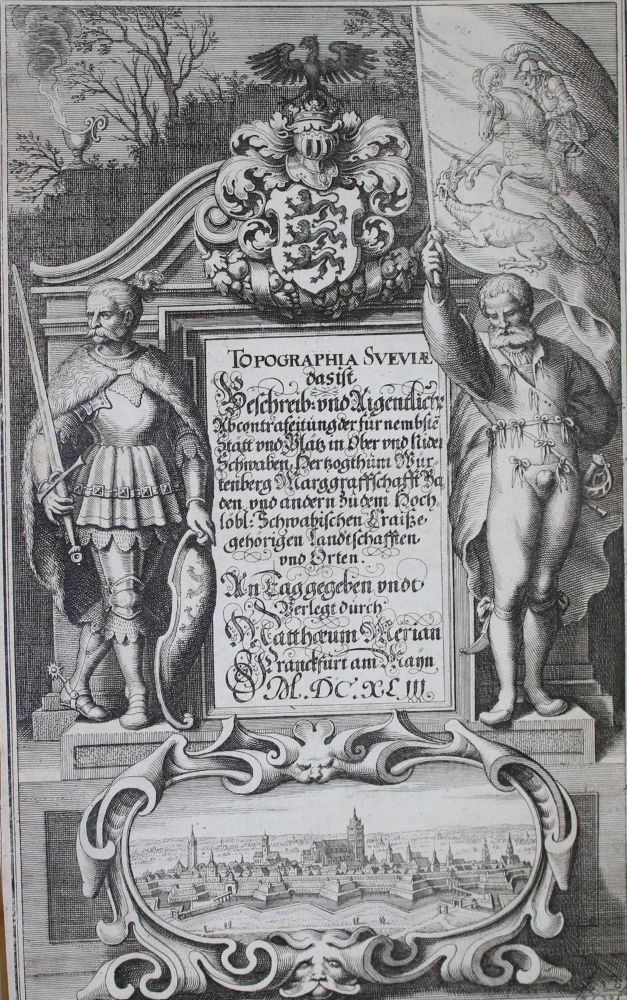 TOPOGRAPHIA SVEVIÆ
das ist
Beschreib- vnd Aigentliche
Abcontrafeitung der fürnembstē
Stätt vnd Plätz in Ober vnd Nider
Schwaben, Hertzogthum Wür-
tenberg Marggraffschafft Ba
den vnd andern zu dem Hoch
löbl: Schwabischen Craiße
gehörigen Landtschafften
vnd Orten.
An Tag gegeben vndt
Verlegt durch
Matthæum Merian
Franckfurt am Mayn
M.DC.XLIII